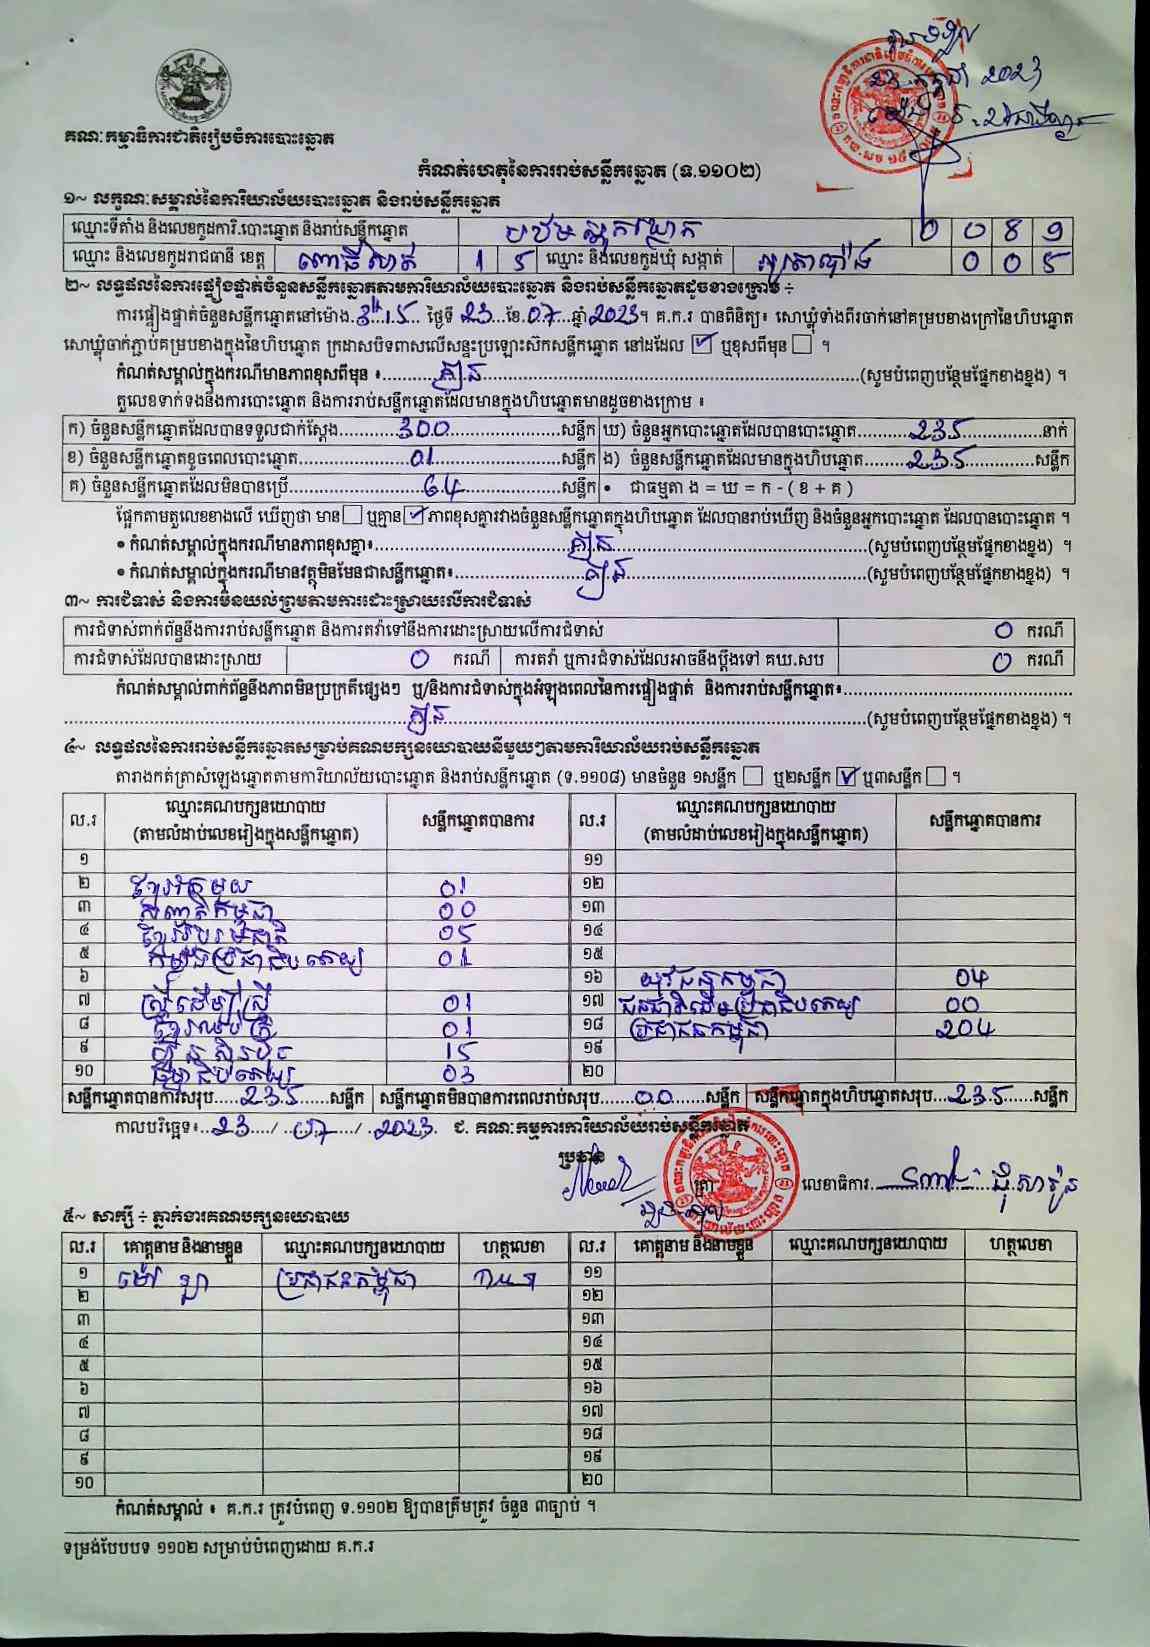 គណៈកម្មាធិការជាតិរៀបចំការបោះឆ្នោត
កំណត់ហេតុនៃការរាប់សន្លឹកឆ្នោត (ទ.១១០២)
១~ លក្ខណៈសម្គាល់នៃការិយាល័យបោះឆ្នោត និងរាប់សន្លឹកឆ្នោត
ឈ្មោះទីតាំង និងលេខកូដការិ.បោះឆ្នោត និងរាប់សន្លឹកឆ្នោត 0 0 8 9
ឈ្មោះ និងលេខកូដរាជធានី ខេត្ត ពោធិ៍សាត់ 1 5 ឈ្មោះ និងលេខកូដឃុំ សង្កាត់ អូរតាប៉ោង 0 0 5
២~ លទ្ធផលនៃការផ្ទៀងផ្ទាត់ចំនួនសន្លឹកឆ្នោតតាមការិយាល័យបោះឆ្នោត និងរាប់សន្លឹកឆ្នោតដូចខាងក្រោម ÷
ការផ្ទៀងផ្ទាត់ចំនួនសន្លឹកឆ្នោតនៅម៉ោង 3h15 ថ្ងៃទី 23 ខែ 07 ឆ្នាំ 2023។ គ.ក.រ បានពិនិត្យ៖ សោឃ្លុំទាំងពីរចាក់នៅគម្របខាងក្រៅនៃហិបឆ្នោត
សោឃ្លុំចាក់ភ្ជាប់គម្របខាងក្នុងនៃហិបឆ្នោត ក្រដាសបិទពាសលើសន្ទះប្រឡោះស៊កសន្លឹកឆ្នោត នៅដដែល ☑ ឬខុសពីមុន ☐ ។
កំណត់សម្គាល់ក្នុងករណីមានភាពខុសពីមុន ៖ គ្មាន (សូមបំពេញបន្ថែមផ្នែកខាងខ្នង) ។
តួលេខទាក់ទងនឹងការបោះឆ្នោត និងការរាប់សន្លឹកឆ្នោតដែលមានក្នុងហិបឆ្នោតមានដូចខាងក្រោម ៖
ក) ចំនួនសន្លឹកឆ្នោតដែលបានទទួលជាក់ស្តែង 300 សន្លឹក ឃ) ចំនួនអ្នកបោះឆ្នោតដែលបានបោះឆ្នោត 235 នាក់
ខ) ចំនួនសន្លឹកឆ្នោតខូចពេលបោះឆ្នោត 01 សន្លឹក ង) ចំនួនសន្លឹកឆ្នោតដែលមានក្នុងហិបឆ្នោត 235 សន្លឹក
គ) ចំនួនសន្លឹកឆ្នោតដែលមិនបានប្រើ 64 សន្លឹក • ជាធម្មតា ង = ឃ = ក - ( ខ + គ )
ផ្អែកតាមតួលេខខាងលើ ឃើញថា មាន ☐ ឬគ្មាន ☑ ភាពខុសគ្នារវាងចំនួនសន្លឹកឆ្នោតក្នុងហិបឆ្នោត ដែលបានរាប់ឃើញ និងចំនួនអ្នកបោះឆ្នោត ដែលបានបោះឆ្នោត ។
• កំណត់សម្គាល់ក្នុងករណីមានភាពខុសគ្នា៖ គ្មាន (សូមបំពេញបន្ថែមផ្នែកខាងខ្នង) ។
• កំណត់សម្គាល់ក្នុងករណីមានវត្ថុមិនមែនជាសន្លឹកឆ្នោត៖ គ្មាន (សូមបំពេញបន្ថែមផ្នែកខាងខ្នង) ។
៣~ ការជំទាស់ និងការមិនយល់ព្រមតាមការដោះស្រាយលើការជំទាស់
ការជំទាស់ពាក់ព័ន្ធនឹងការរាប់សន្លឹកឆ្នោត និងការតវ៉ាទៅនឹងការដោះស្រាយលើការជំទាស់ 0 ករណី
ការជំទាស់ដែលបានដោះស្រាយ 0 ករណី ការតវ៉ា ឬការជំទាស់ដែលអាចនឹងប្តឹងទៅ គឃ.សប 0 ករណី
កំណត់សម្គាល់ពាក់ព័ន្ធនឹងភាពមិនប្រក្រតីផ្សេងៗ ឬ/និងការជំទាស់ក្នុងអំឡុងពេលនៃការផ្ទៀងផ្ទាត់ និងការរាប់សន្លឹកឆ្នោត៖
គ្មាន (សូមបំពេញបន្ថែមផ្នែកខាងខ្នង) ។
៤~ លទ្ធផលនៃការរាប់សន្លឹកឆ្នោតសម្រាប់គណបក្សនយោបាយនីមួយៗតាមការិយាល័យរាប់សន្លឹកឆ្នោត
តារាងកត់ត្រាសំឡេងឆ្នោតតាមការិយាល័យបោះឆ្នោត និងរាប់សន្លឹកឆ្នោត (ទ.១១០៨) មានចំនួន ១សន្លឹក ☐ ឬ២សន្លឹក ☑ ឬ៣សន្លឹក ☐ ។
ល.រ ឈ្មោះគណបក្សនយោបាយ (តាមលំដាប់លេខរៀងក្នុងសន្លឹកឆ្នោត) សន្លឹកឆ្នោតបានការ ល.រ ឈ្មោះគណបក្សនយោបាយ (តាមលំដាប់លេខរៀងក្នុងសន្លឹកឆ្នោត) សន្លឹកឆ្នោតបានការ
១ ១១
២ ខ្មែររួបរួម 01 ១២
៣ សញ្ជាតិកម្ពុជា 00 ១៣
៤ 05 ១៤
៥ កម្លាំងប្រជាធិបតេយ្យ 01 ១៥
៦ ១៦ យុវជនកម្ពុជា 04
៧ ស្ត្រីដើម្បីស្ត្រី 01 ១៧ ជនជាតិដើមប្រជាធិបតេយ្យ 00
៨ 01 ១៨ ប្រជាជនកម្ពុជា 204
៩ ហ៊្វុនស៊ិនប៉ិច 15 ១៩
១០ ធម្មាធិបតេយ្យ 03 ២០
សន្លឹកឆ្នោតបានការសរុប 235 សន្លឹក សន្លឹកឆ្នោតមិនបានការពេលរាប់សរុប 00 សន្លឹក សន្លឹកឆ្នោតក្នុងហិបឆ្នោតសរុប 235 សន្លឹក
កាលបរិច្ឆេទ៖ 23 / 07 / 2023 ជ. គណៈកម្មការការិយាល័យរាប់សន្លឹកឆ្នោត
ប្រធាន
ត្រា លេខាធិការ
៥~ សាក្សី ÷ ភ្នាក់ងារគណបក្សនយោបាយ
ល.រ គោត្តនាម និងនាមខ្លួន ឈ្មោះគណបក្សនយោបាយ ហត្ថលេខា ល.រ គោត្តនាម និងនាមខ្លួន ឈ្មោះគណបក្សនយោបាយ ហត្ថលេខា
១ ម៉ៅ ឡា ប្រជាជនកម្ពុជា ១១
២ ១២
៣ ១៣
៤ ១៤
៥ ១៥
៦ ១៦
៧ ១៧
៨ ១៨
៩ ១៩
១០ ២០
កំណត់សម្គាល់ ៖ គ.ក.រ ត្រូវបំពេញ ទ.១១០២ ឱ្យបានត្រឹមត្រូវ ចំនួន ៣ច្បាប់ ។
ទម្រង់បែបបទ ១១០២ សម្រាប់បំពេញដោយ គ.ក.រ